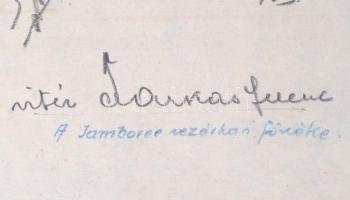 vitéz Farkas Ferenc
A Jamboree vezérkari főnöke.